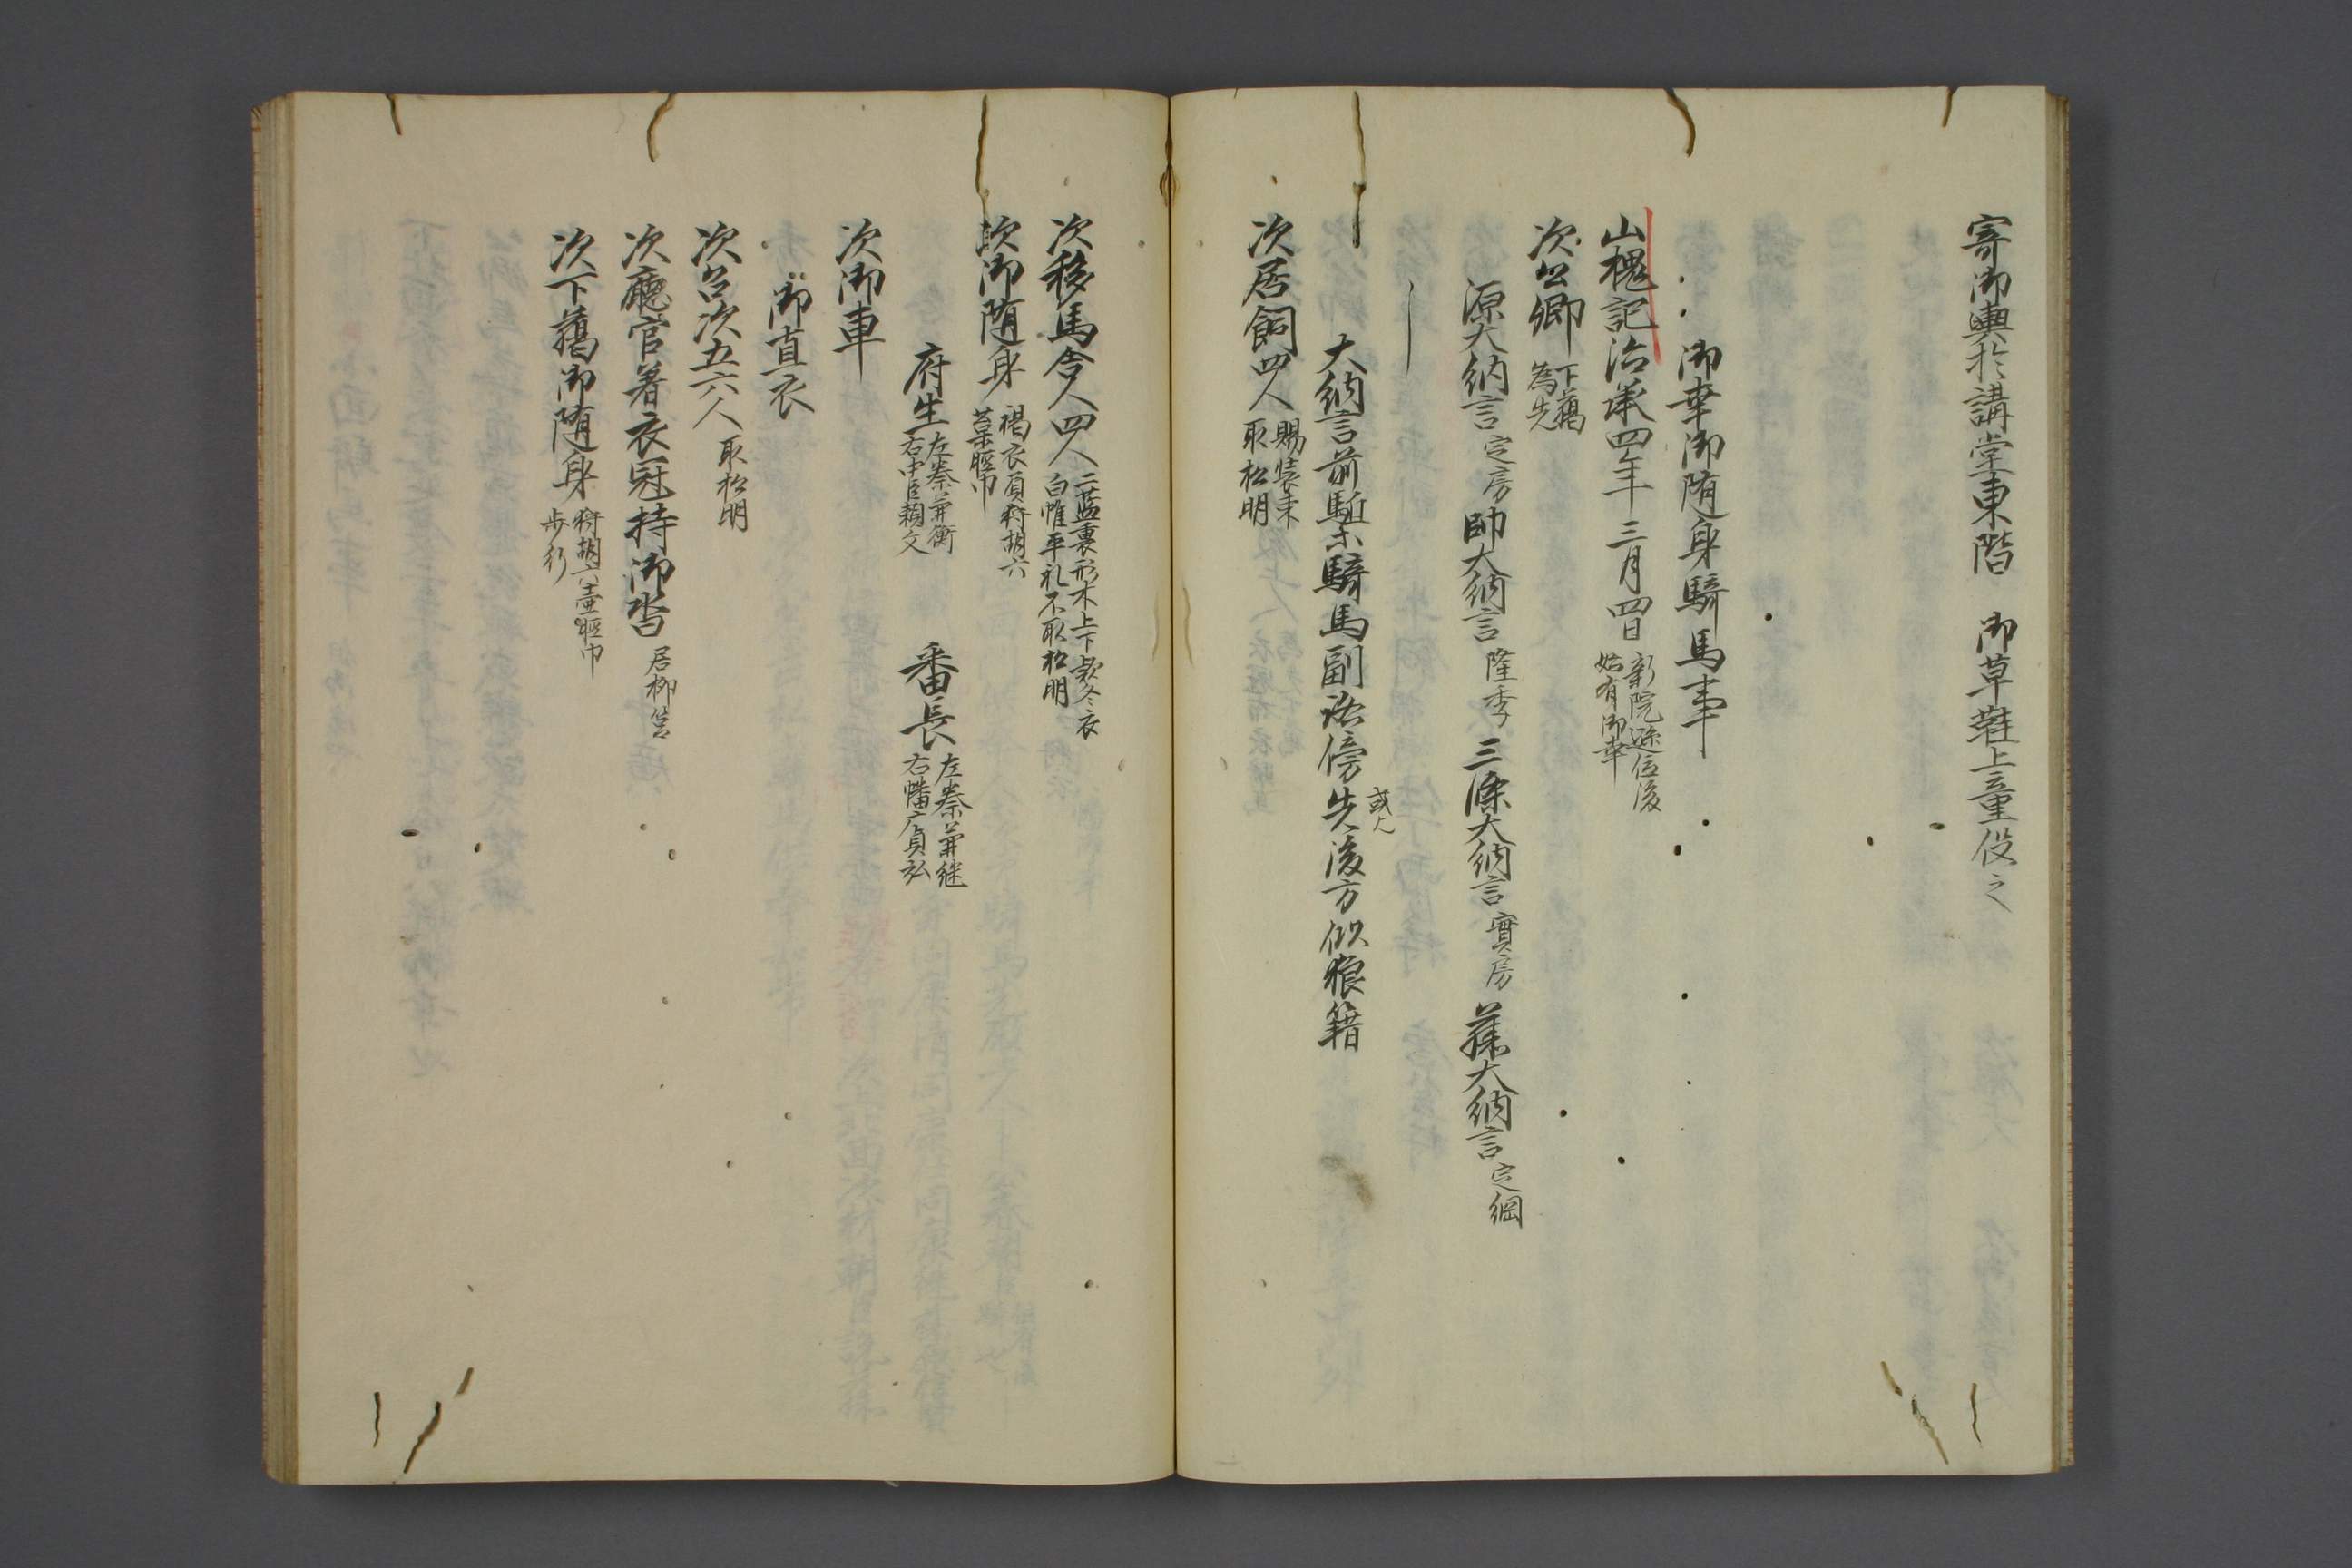 寄御輿於講堂東階　御草鞋上童役之
御幸御随身騎馬事
山槐記治承四年三月四日 新院遜位後
始有御幸
次公卿 下﨟
為先
源大納言 定房 帥大納言 隆季 三條大納言 實房 藤大納言 定綱
大納言前駈ホ騎馬副路傍先後方似狼籍
或人
次居飼四人 賜装束
取松明
次移馬舎人四人 二藍裏形木上下款冬衣
白帷平礼不取松明
次御随身 褐衣負狩胡六
藁脛巾
府生 左秦兼衡
右中臣頼文 番長 左秦兼継
右幡广貞弘
次御車
御直衣
次召次五六人 取松明
次廳官着衣冠持御沓 居柳筥
次下﨟御随身 狩胡六壷脛巾
歩行